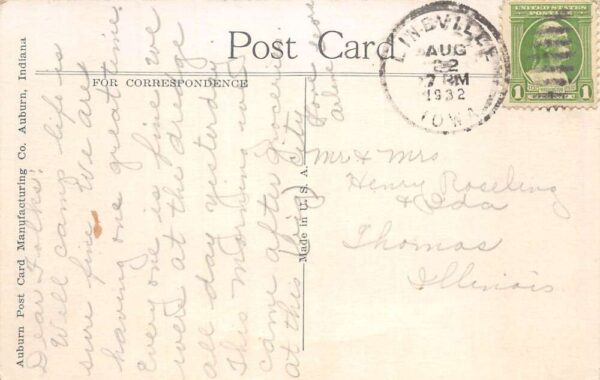 Post Card
FOR CORRESPONDENCE
Auburn Post Card Manufacturing Co. Auburn, Indiana
Made in U. S. A.
LINEVILLE
AUG
22
7 PM
1932
IOWA
UNITED STATES
POSTAGE
1 1
Dear Folks!
Well camp life is
sure fine. We are
having one great time.
Every one is fine. we
were at the dredge
all day yesterday
This morning we
came after groceries
at this (big) city
Love you
Mr & Mrs
Henry Roseling
& Ida
Thomas
Illinois